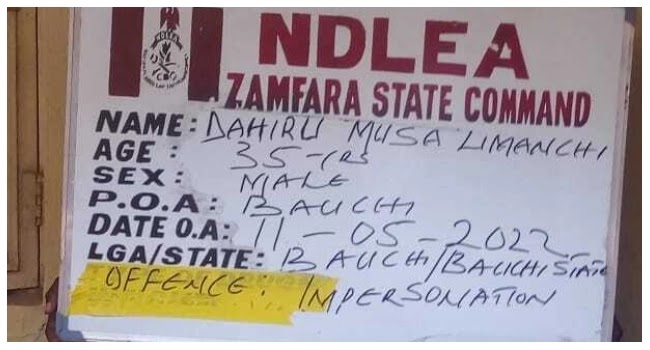 NDLEA
NDLEA
ZAMFARA STATE COMMAND
NAME: DAHIRU MUSA LIMANCHI
AGE: 35-YRS
SEX: MALE
P.O.A: BAUCHI
DATE O.A: 11-05-2022
LGA/STATE: BAUCHI/BAUCHI STATE
OFFENCE: IMPERSONATION